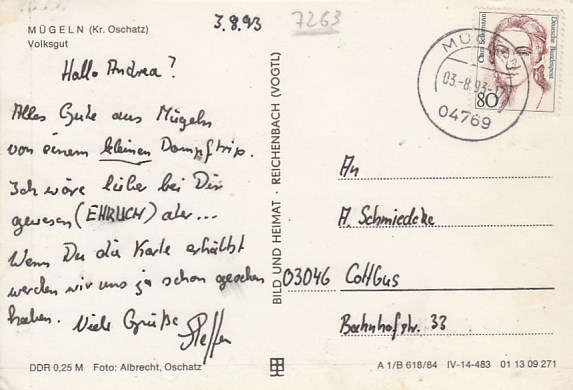 MÜGELN (Kr. Oschatz)
Volksgut
3.8.93
7263
Hallo Andrea?
Alles Gute aus Mügeln
von einem kleinen Dampftrip.
Ich wäre lieber bei Dir
gewesen (EHRLICH) aber...
Wenn Du die Karte erhältst
werden wir uns ja schon gesehen
haben. Viele Grüße Steffen
DDR 0,25 M Foto: Albrecht, Oschatz
BILD UND HEIMAT · REICHENBACH (VOGTL)
Clara Schumann
Deutsche Bundespost
80
03.-8.93-17
04769
An
A. Schmiedcke
03046 Cottbus
Bahnhofstr. 33
A 1/B 618/84 IV-14-483 01 13 09 271